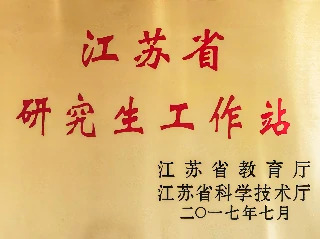 江苏省
研究生工作站
江苏省教育厅
江苏省科学技术厅
二〇一七年七月